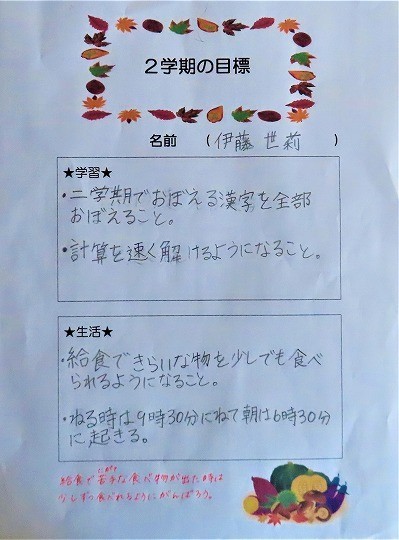 ２学期の目標
名前　（伊藤 世莉　）
★学習★
・二学期でおぼえる漢字を全部
おぼえること。
・計算を速く解けるようになること。
★生活★
・給食できらいな物を少しでも食べ
られるようになること。
・ねる時は9時30分にねて朝は6時30分
に起きる。
給食で苦手な食べ物が出た時は
少しずつ食べれるようにがんばろう。